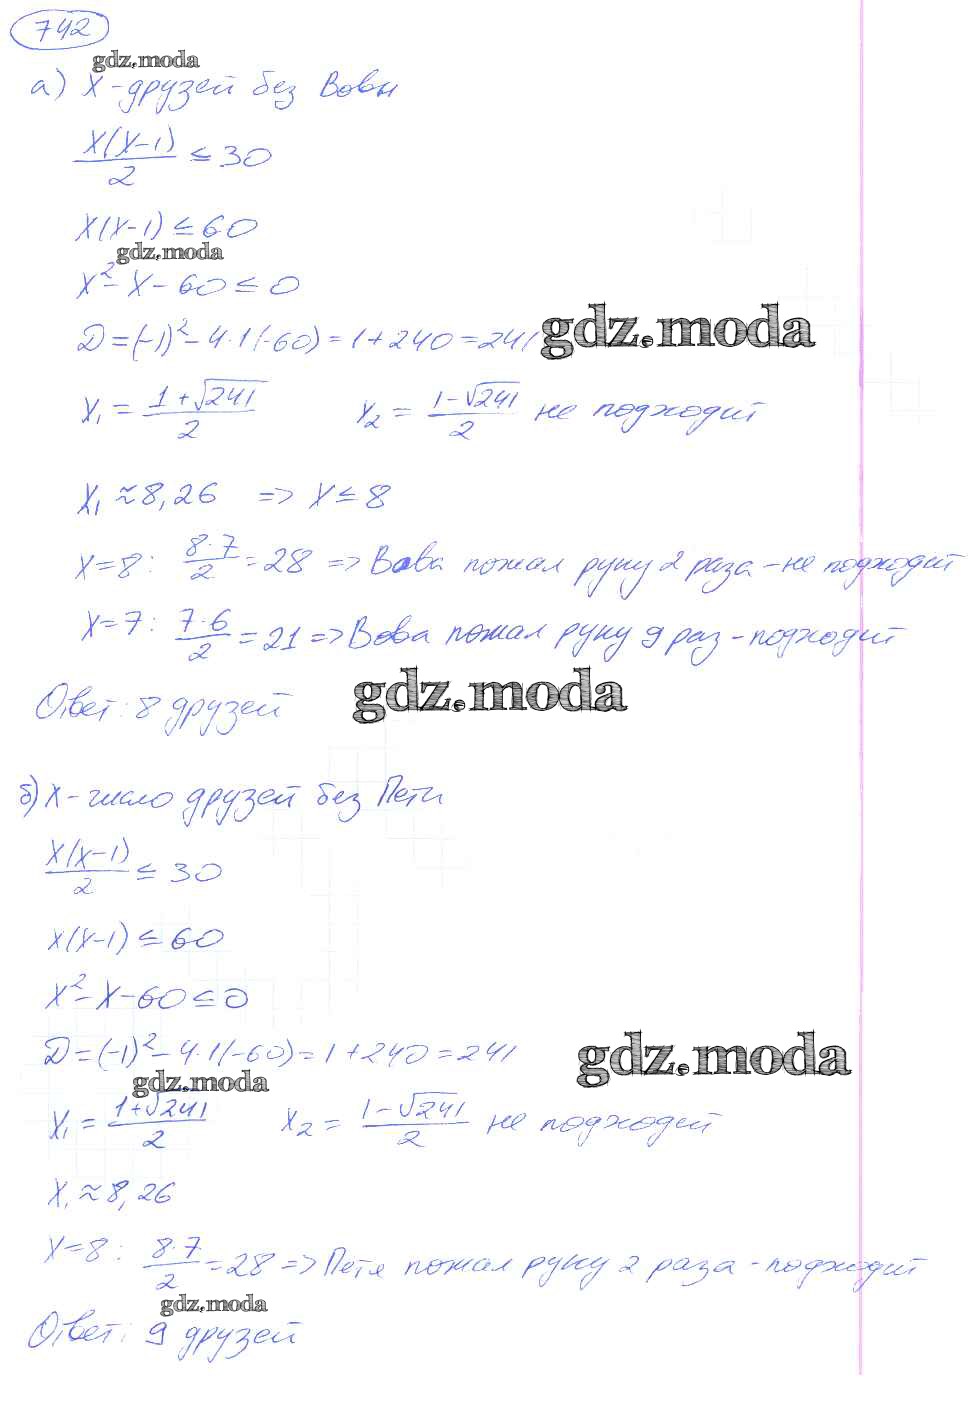 742
gdz.moda
а) x - друзей без Вовы
x(x-1)/2 ≤ 30
x(x-1) ≤ 60
gdz.moda
x² - x - 60 ≤ 0
D = (-1)² - 4·1(-60) = 1 + 240 = 241
gdz.moda
x₁ = (1+√241)/2 x₂ = (1-√241)/2 не подходит
x₁ ≈ 8,26 => x ≤ 8
x=8: 8·7/2 = 28 => Вова пожал руку 2 раза - не подходит
x=7: 7·6/2 = 21 => Вова пожал руку 9 раз - подходит
gdz.moda
Ответ: 8 друзей
б) x - число друзей без Пети
x(x-1)/2 ≤ 30
x(x-1) ≤ 60
x² - x - 60 ≤ 0
D = (-1)² - 4·1(-60) = 1 + 240 = 241
gdz.moda
gdz.moda
x₁ = (1+√241)/2 x₂ = (1-√241)/2 не подходит
x₁ ≈ 8,26
x=8: 8·7/2 = 28 => Петя пожал руку 2 раза - подходит
gdz.moda
Ответ: 9 друзей